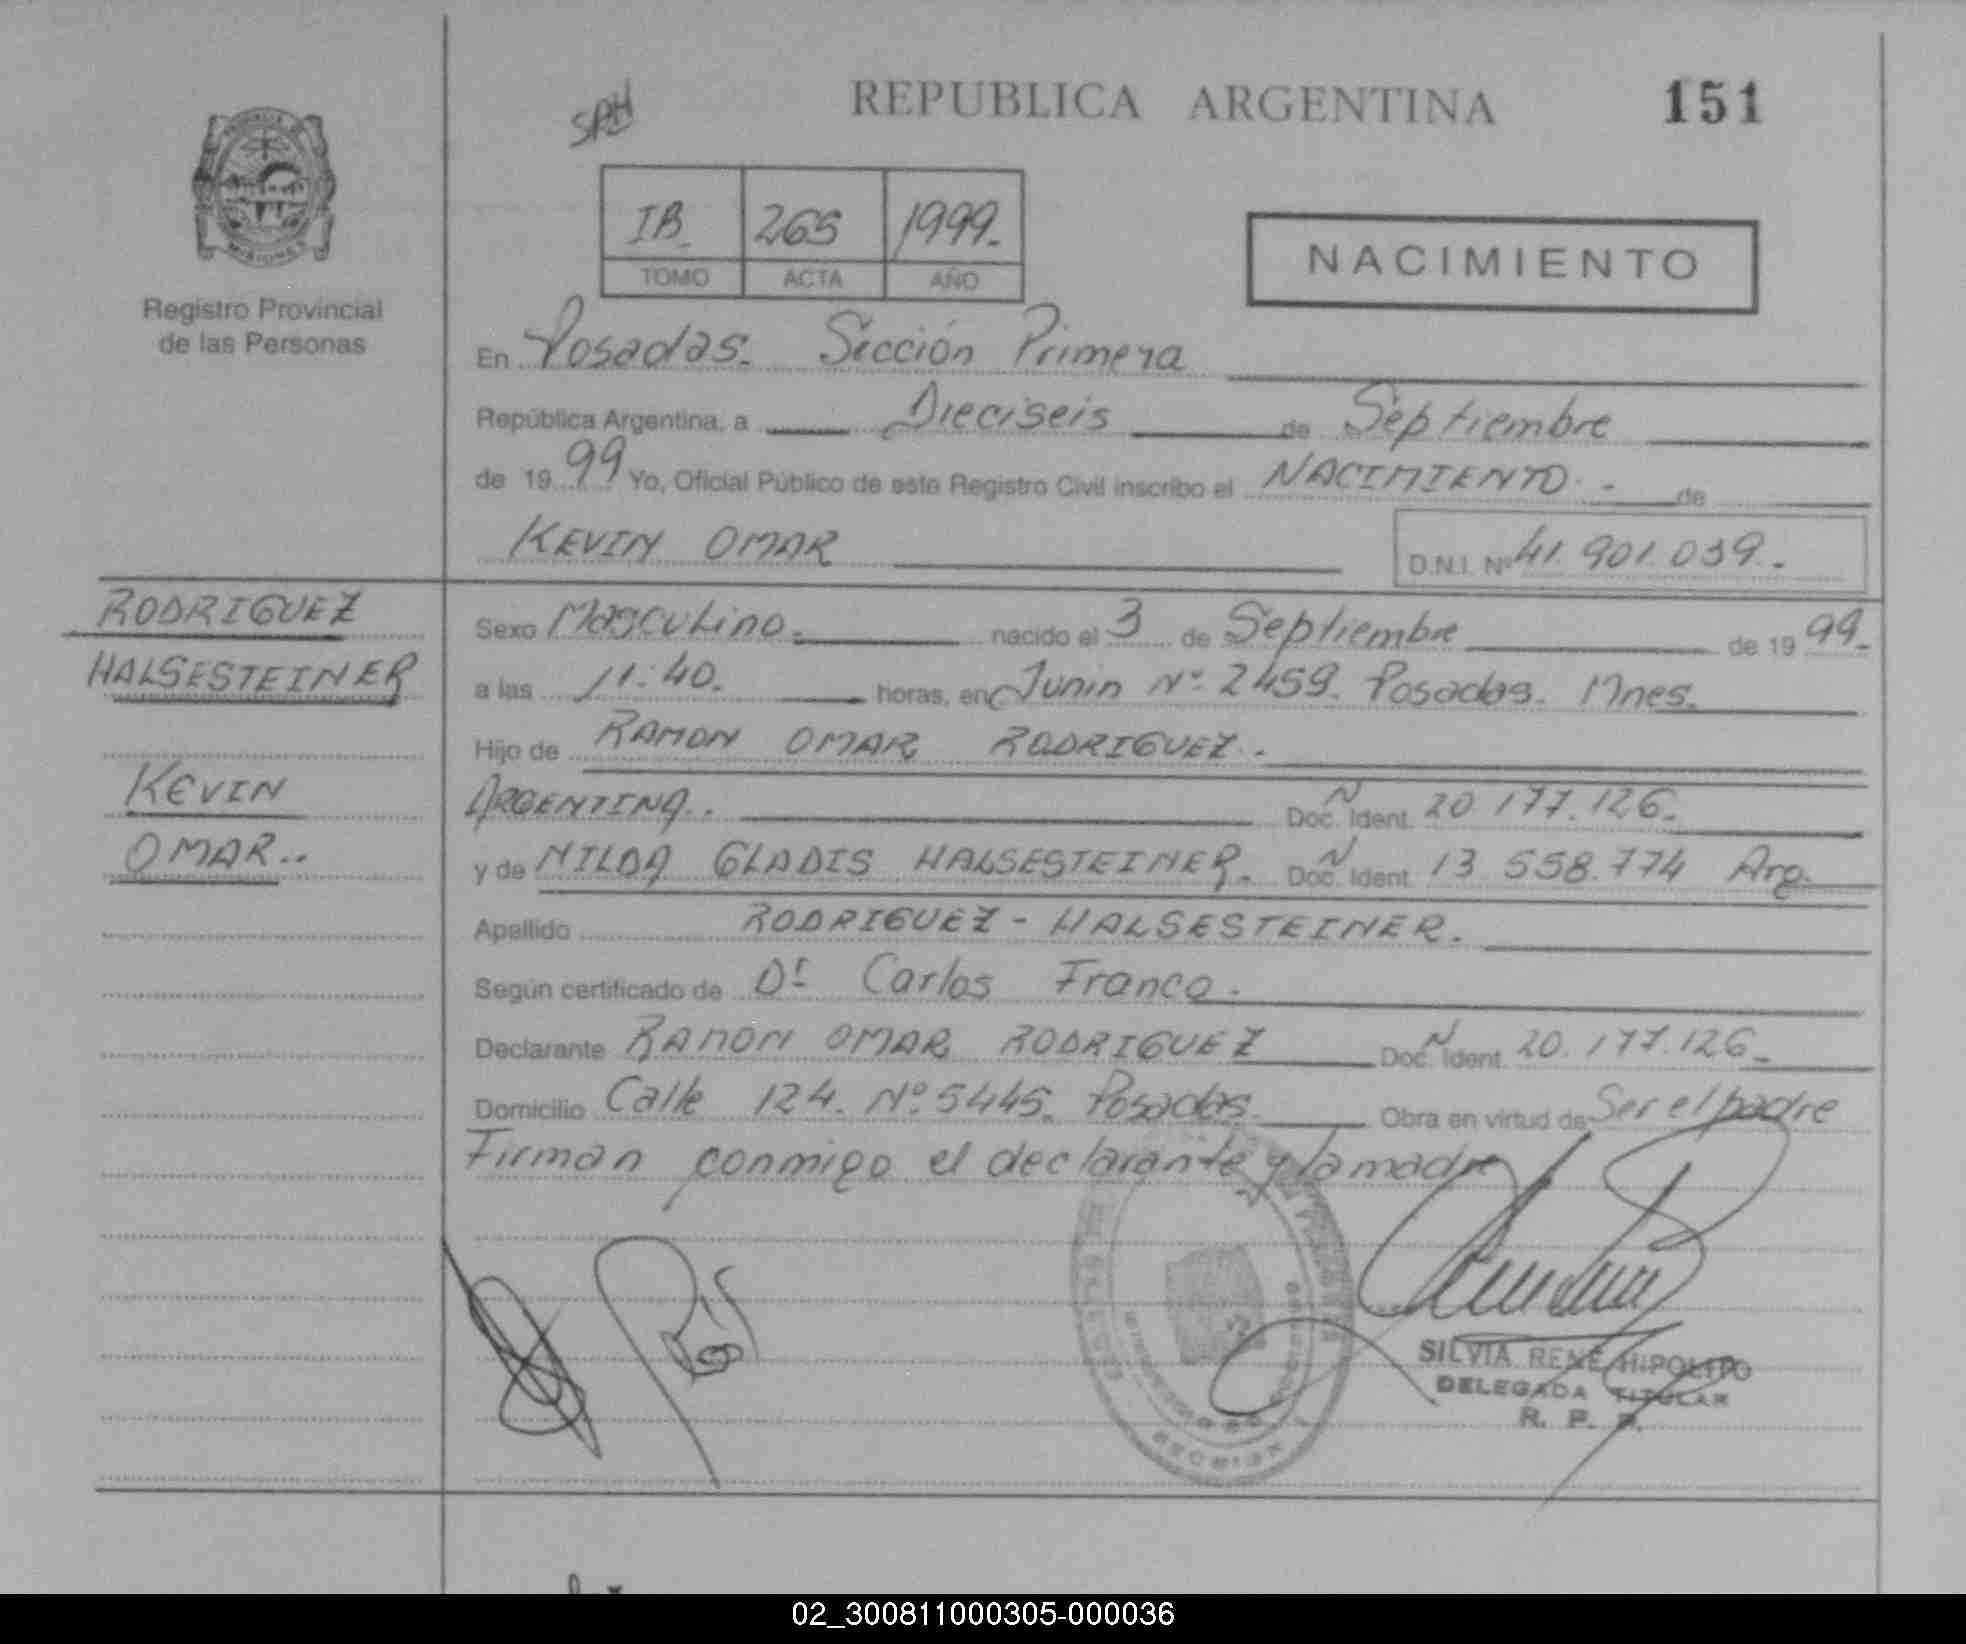 REPUBLICA ARGENTINA 151
IB. 265 1999.
TOMO ACTA AÑO
NACIMIENTO
MISIONES
Registro Provincial
de las Personas
En Posadas. Sección Primera
República Argentina, a Dieciseis de Septiembre
de 19 99 Yo, Oficial Público de este Registro Civil inscribo el NACIMIENTO. - de
KEVIN OMAR D.N.I. Nº 41.901.039.-
RODRIGUEZ
HALSESTEINER
KEVIN
OMAR..
Sexo Masculino. nacido el 3 de Septiembre de 19 99.-
a las 11:40. horas, en Junin Nº 2459. Posadas. Mnes.
Hijo de RAMON OMAR RODRIGUEZ.
ARGENTINA.. N Doc. Ident. 20.177.126.
y de NILDA GLADIS HALSESTEINER. N Doc. Ident. 13.558.774 Arg.
Apellido RODRIGUEZ - HALSESTEINER.
Según certificado de Dr Carlos Franco.
Declarante RAMON OMAR RODRIGUEZ N Doc. Ident. 20.177.126.
Domicilio Calle 124. Nº 5445. Posadas. Obra en virtud de Ser el padre
Firman conmigo el declarante y la madre
SILVIA RENE HIPOLITO
DELEGADA TITULAR
R. P. P.
SECCION
02_300811000305-000036